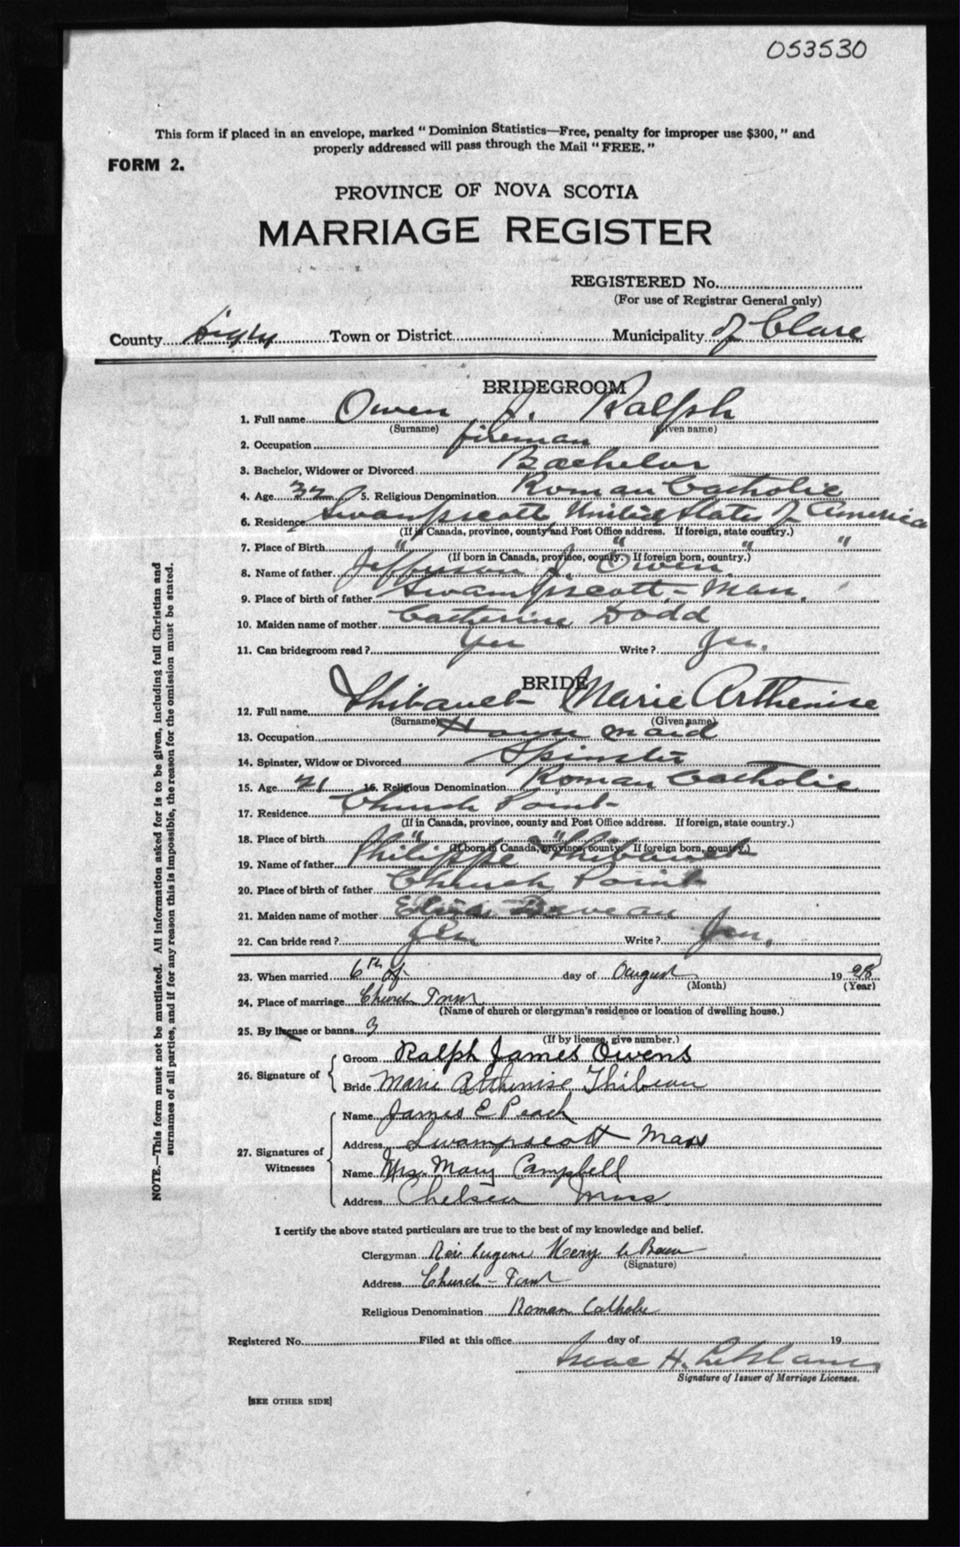 053530
This form if placed in an envelope, marked "Dominion Statistics—Free, penalty for improper use $300," and
properly addressed will pass through the Mail "FREE."
FORM 2.
PROVINCE OF NOVA SCOTIA
MARRIAGE REGISTER
REGISTERED No.
(For use of Registrar General only)
County Digby Town or District Municipality of Clare
BRIDEGROOM
1. Full name Owen J. Ralph
(Surname) (Given name)
2. Occupation fireman
3. Bachelor, Widower or Divorced Bachelor
4. Age 32 5. Religious Denomination Roman Catholic
6. Residence Swampscott United States of America
(If in Canada, province, county and Post Office address. If foreign, state country.)
7. Place of Birth " " " "
(If born in Canada, province, county. If foreign born, country.)
8. Name of father Jefferson J. Owen
9. Place of birth of father Swampscott - Mass.
10. Maiden name of mother Catherine Dodd
11. Can bridegroom read? Yes Write? Yes.
BRIDE
12. Full name Thibault Marie Arthenise
(Surname) (Given name)
13. Occupation House maid
14. Spinster, Widow or Divorced Spinster
15. Age 21 16. Religious Denomination Roman Catholic
17. Residence Church Point
(If in Canada, province, county and Post Office address. If foreign, state country.)
18. Place of birth " "
(If born in Canada, province, county. If foreign born, country.)
19. Name of father Philippe Thibault
20. Place of birth of father Church Point
21. Maiden name of mother Deveau
22. Can bride read? Yes Write? Yes.
23. When married 6th of day of August 1928
(Month) (Year)
24. Place of marriage Church Point
(Name of church or clergyman's residence or location of dwelling house.)
25. By license or banns 3
(If by license, give number.)
26. Signature of
Groom Ralph James Owens
Bride Marie Arthenise Thibeau
27. Signatures of Witnesses
Name James E Peach
Address Swampscott Mass
Name Mrs. Mary Campbell
Address Chelsea Mass
I certify the above stated particulars are true to the best of my knowledge and belief.
Clergyman Eugene Henry
(Signature)
Address Church-Point
Religious Denomination Roman Catholic
Registered No. Filed at this office day of 19
Isaac H. LeBlanc
Signature of Issuer of Marriage Licenses.
[SEE OTHER SIDE]
NOTE.—This form must not be mutilated. All information asked for is to be given, including full Christian and
surnames of all parties, and if for any reason this is impossible, the reason for the omission must be stated.